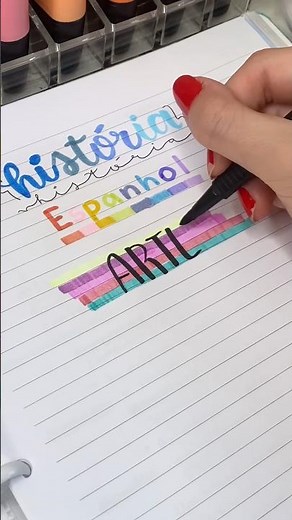 história
história
Espanhol
ARTL